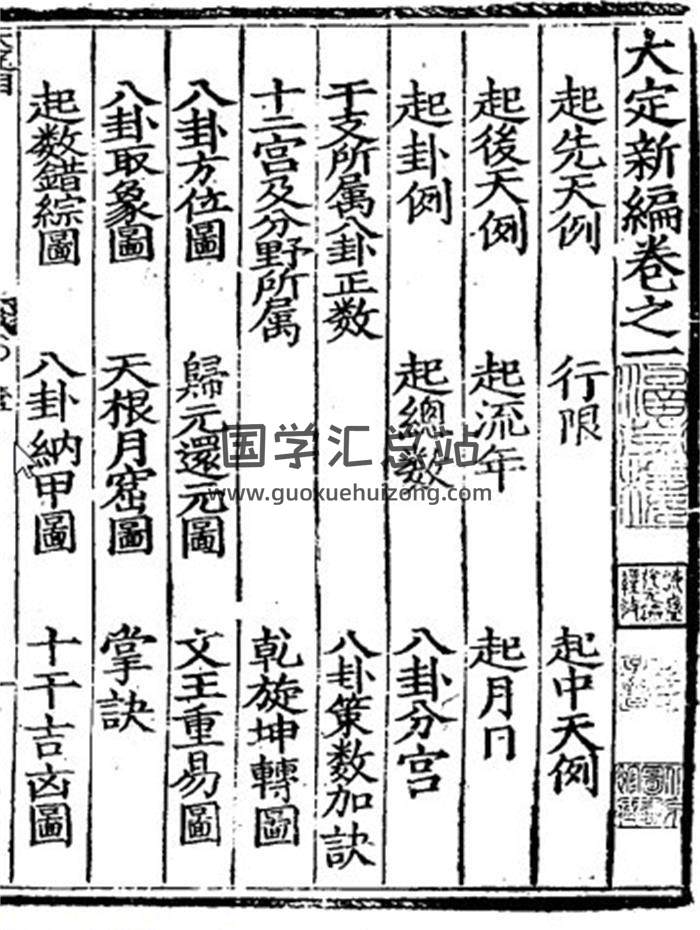 大定新編卷之一
起先天例 行限 起中天例
起後天例 起流年 起月日
起卦例 起總数 八卦分宫
干支所属八卦正数 八卦策数加訣
十二宫及分野所属 乾旋坤轉圖
八卦方位圖 歸元還元圖 文王重易圖
八卦取象圖 天根月窟圖 掌訣
起数錯綜圖 八卦納甲圖 十干吉凶圖
国学汇总站
www.guoxuehuizong.com